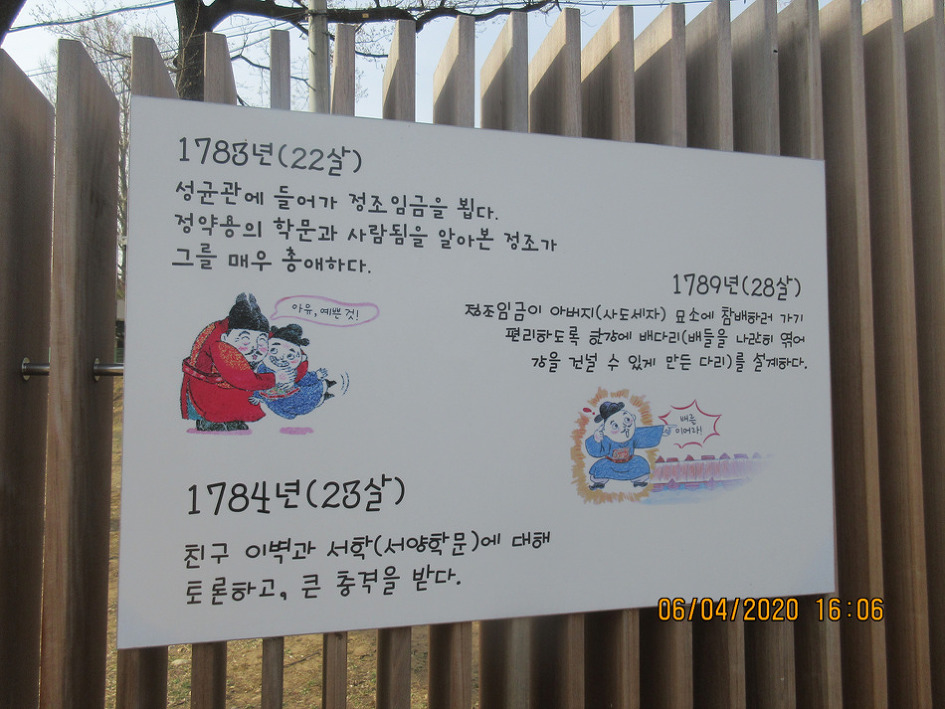 1783년(22살)
성균관에 들어가 정조임금을 뵙다.
정약용의 학문과 사람됨을 알아본 정조가
그를 매우 총애하다.
아유, 예쁜 것!
1789년(28살)
정조임금이 아버지(사도세자) 묘소에 참배하러 가기
편리하도록 한강에 배다리(배들을 나란히 엮어
강을 건널 수 있게 만든 다리)를 설계하다.
배를
이어라!
1784년(23살)
친구 이벽과 서학(서양학문)에 대해
토론하고, 큰 충격을 받다.
06/04/2020 16:06